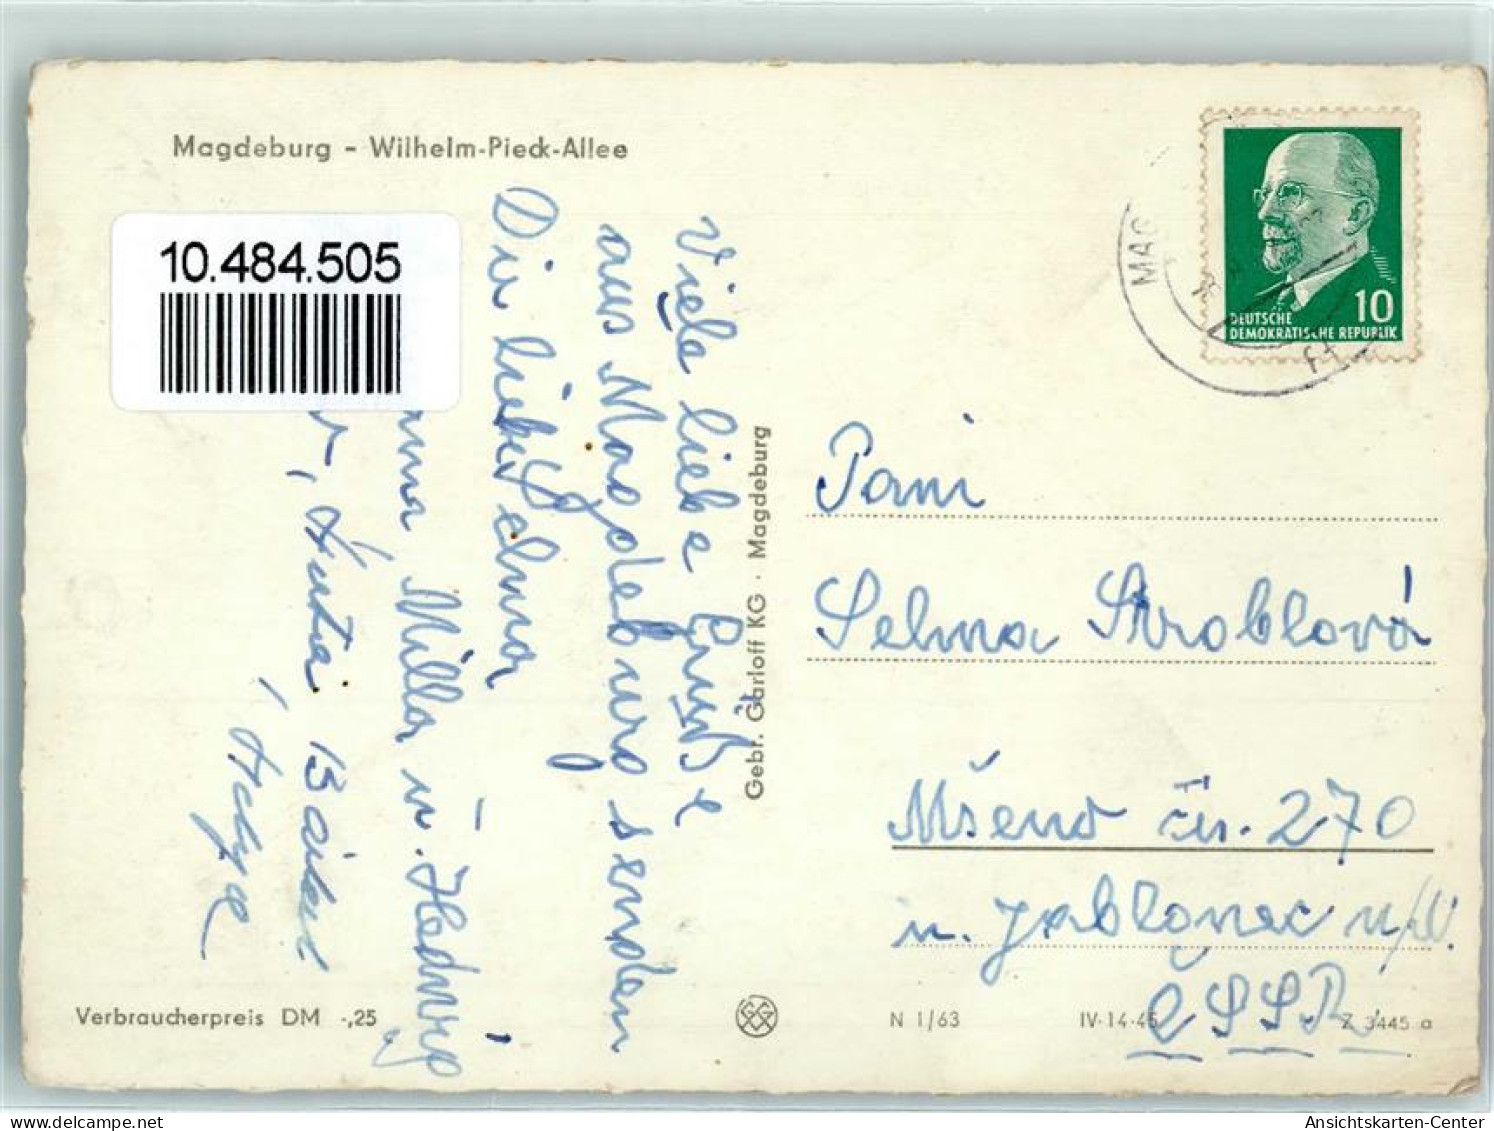 Magdeburg - Wilhelm-Pieck-Allee
10.484.505
Viele liebe Grüße
aus Magdeburg senden
Dir liebe Selma
Milla u. Hedwig
Helga
Gebr. Garloff KG · Magdeburg
MAG
10
DEUTSCHE
DEMOKRATISCHE REPUBLIK
Pani
Selma Stroblová
Mšeno čís. 270
u. Jablonec n/N.
ČSSR
Verbraucherpreis DM -,25
N 1/63
IV-14-45
Z 3445 a
Ansichtskarten-Center